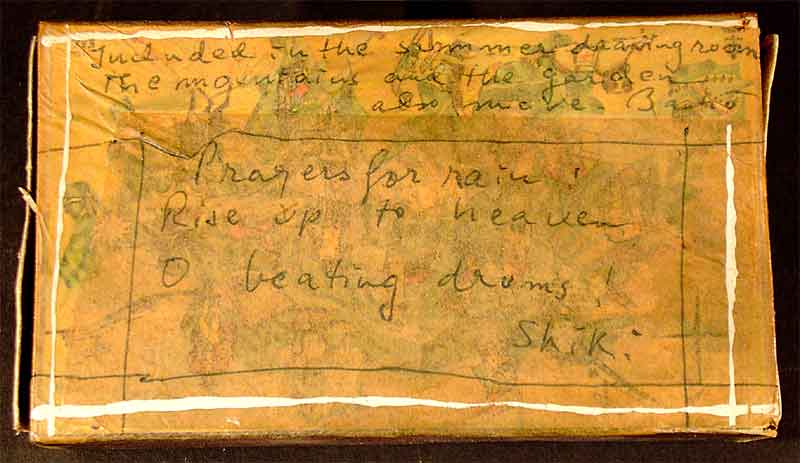 Included in the summer drawing room
the mountains and the garden ....
also move Bashō
Prayers for rain :
Rise up to heaven
O beating drums !
Shiki.